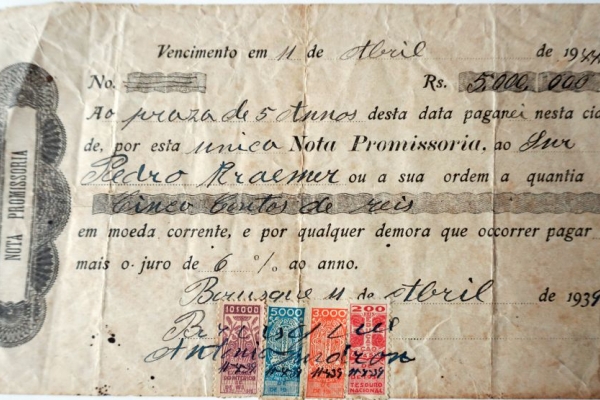 NOTA PROMISSORIA
Vencimento em 11 de Abril de 1944
No. Rs. 5.000,000
Ao prazo de 5 Annos desta data paganei nesta cid
de, por esta unica Nota Promissoria, ao Snr
Pedro Kraemer ou a sua ordem a quantia
Cinco Contos de reis
em moeda corrente, e por qualquer demora que occorrer pagar
mais o juro de 6 % ao anno.
Brusque 11 de Abril de 1939
101000 5000 3,000 200
Antonio
11-4-39 11-4-39 11-4-39 11-4-39
TESOURO
NACIONAL